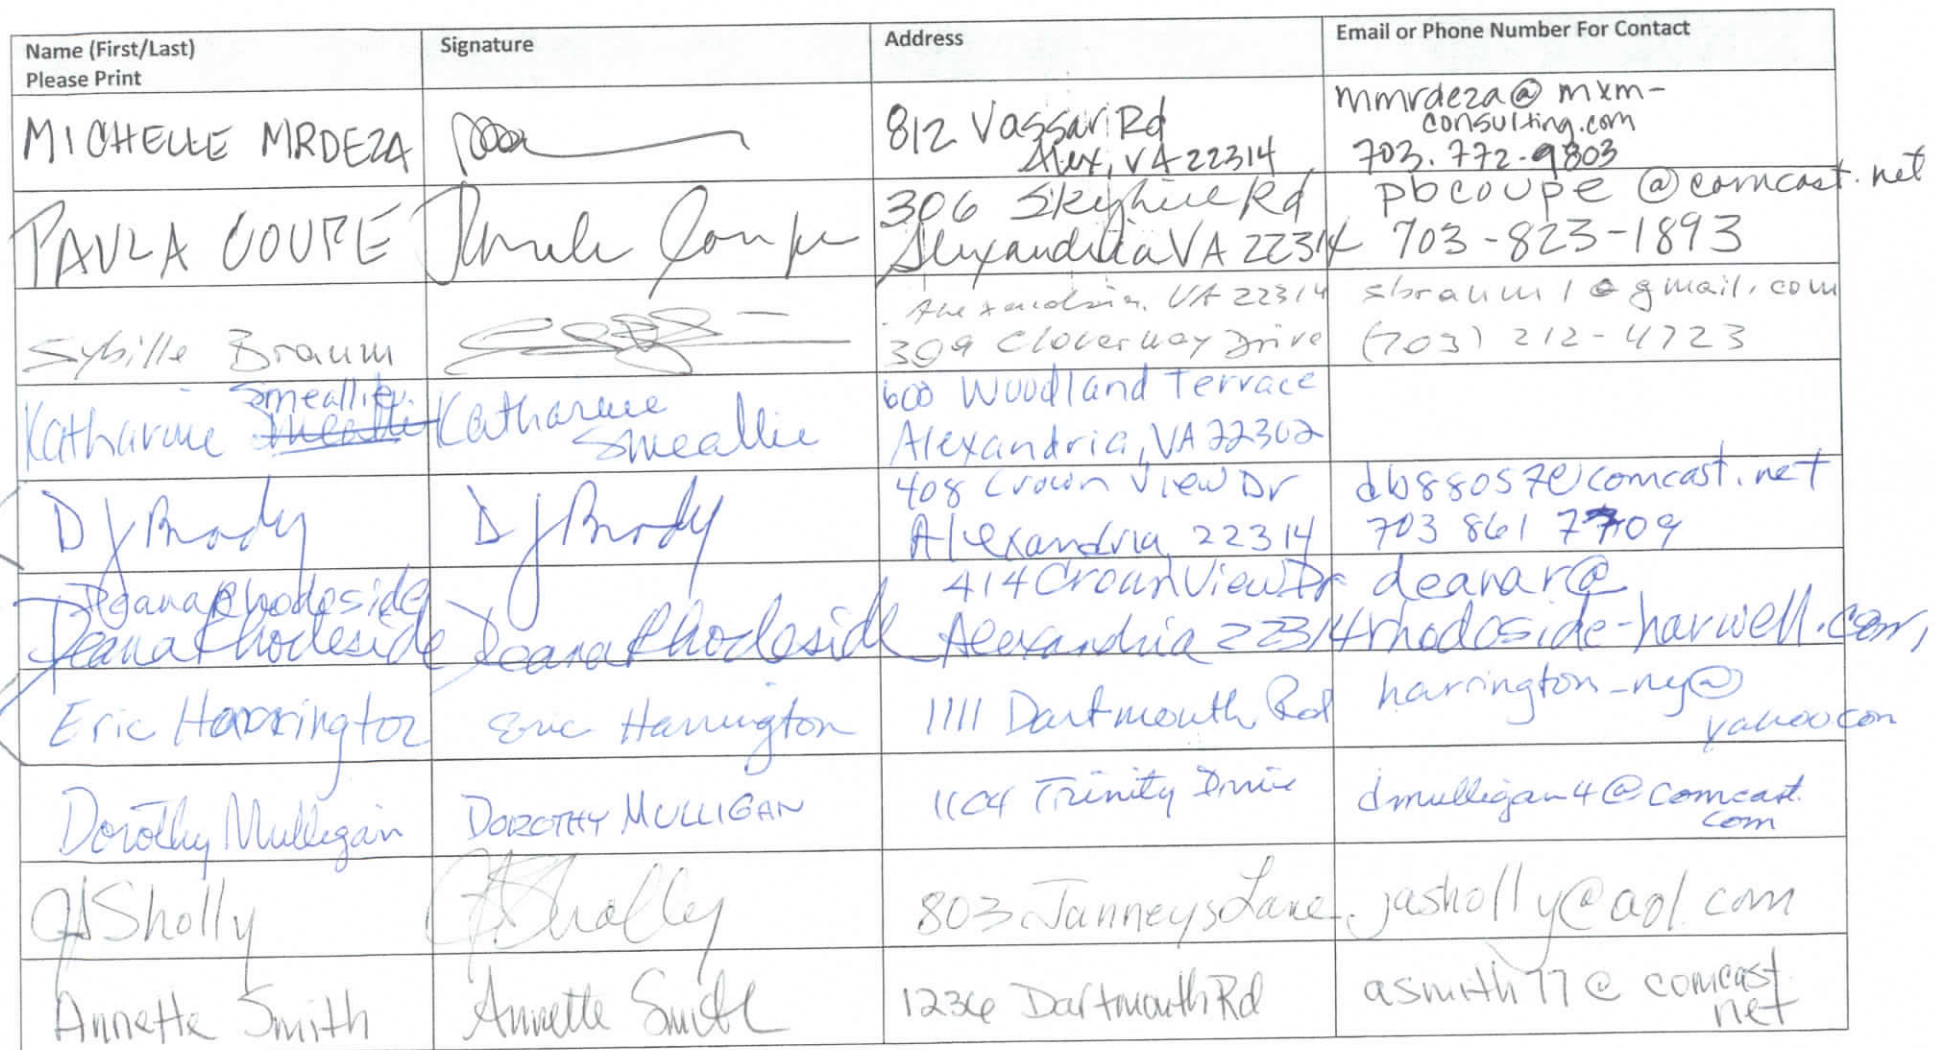 Name (First/Last)
Please Print
Signature
Address
Email or Phone Number For Contact
MICHELLE MRDEZA
812 Vassar Rd
Alex, VA 22314
mmrdeza@mxm-
consulting.com
703.772-9803
PAULA COUPE
Paula Coupe
306 Skyhill Rd
Alexandria VA 22314
pbcoupe@comcast.net
703-823-1893
Sybille Braum
Alexandria, VA 22314
309 Cloverway Drive
sbraum1@gmail.com
(703) 212-4723
Smeallie
Katharine
Katharine
Smeallie
600 Woodland Terrace
Alexandria, VA 22302
D J Brody
D J Brody
408 Crown View Dr
Alexandria 22314
db88057@comcast.net
703 861 7709
Deana Rhodeside
Deana Rhodeside
Deana Rhodeside
414 Crown View Dr
Alexandria 22314
deanar@
rhodeside-harwell.com
Eric Harrington
Eric Harrington
1111 Dartmouth Rd
harrington_ny@
yahoo.com
Dorothy Mulligan
DOROTHY MULLIGAN
1104 Trinity Drive
dmulligan4@comcast.
com
JA Sholly
JA Sholly
803 Janneys Lane
jasholly@aol.com
Annette Smith
Annette Smith
1236 Dartmouth Rd
asmith77@comcast.
net